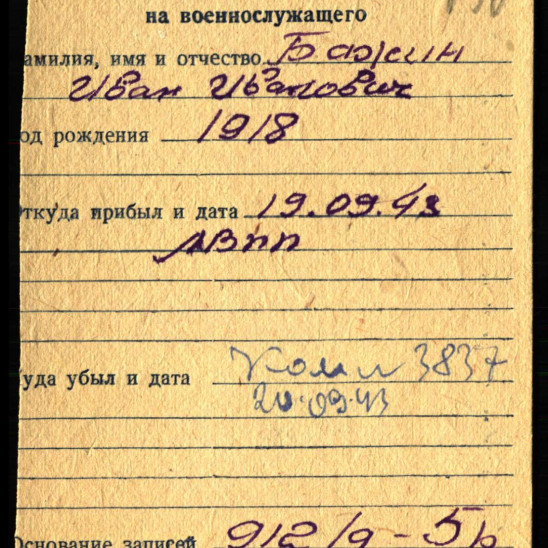 на военнослужащего
амилия, имя и отчество Бажин
Иван Иванович
од рождения 1918
ткуда прибыл и дата 19.09.43
ВПП
уда убыл и дата 3837
20.09.43
Основание записей 912/д-5р